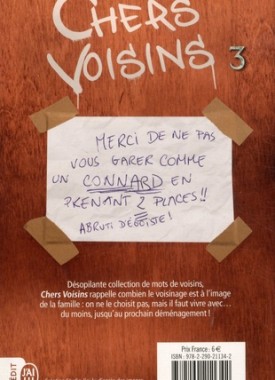 CHERS
VOISINS 3
MERCI DE NE PAS
VOUS GARER COMME
UN CONNARD EN
PRENANT 2 PLACES!!
ABRUTI D'ÉGOÏSTE!
Désopilante collection de mots de voisins,
Chers Voisins rappelle combien le voisinage est à l'image
de la famille : on ne le choisit pas, mais il faut vivre avec…
du moins, jusqu'au prochain déménagement !
Prix France : 6 €
ISBN : 978-2-290-21134-2
INÉDIT
J'AI
LU